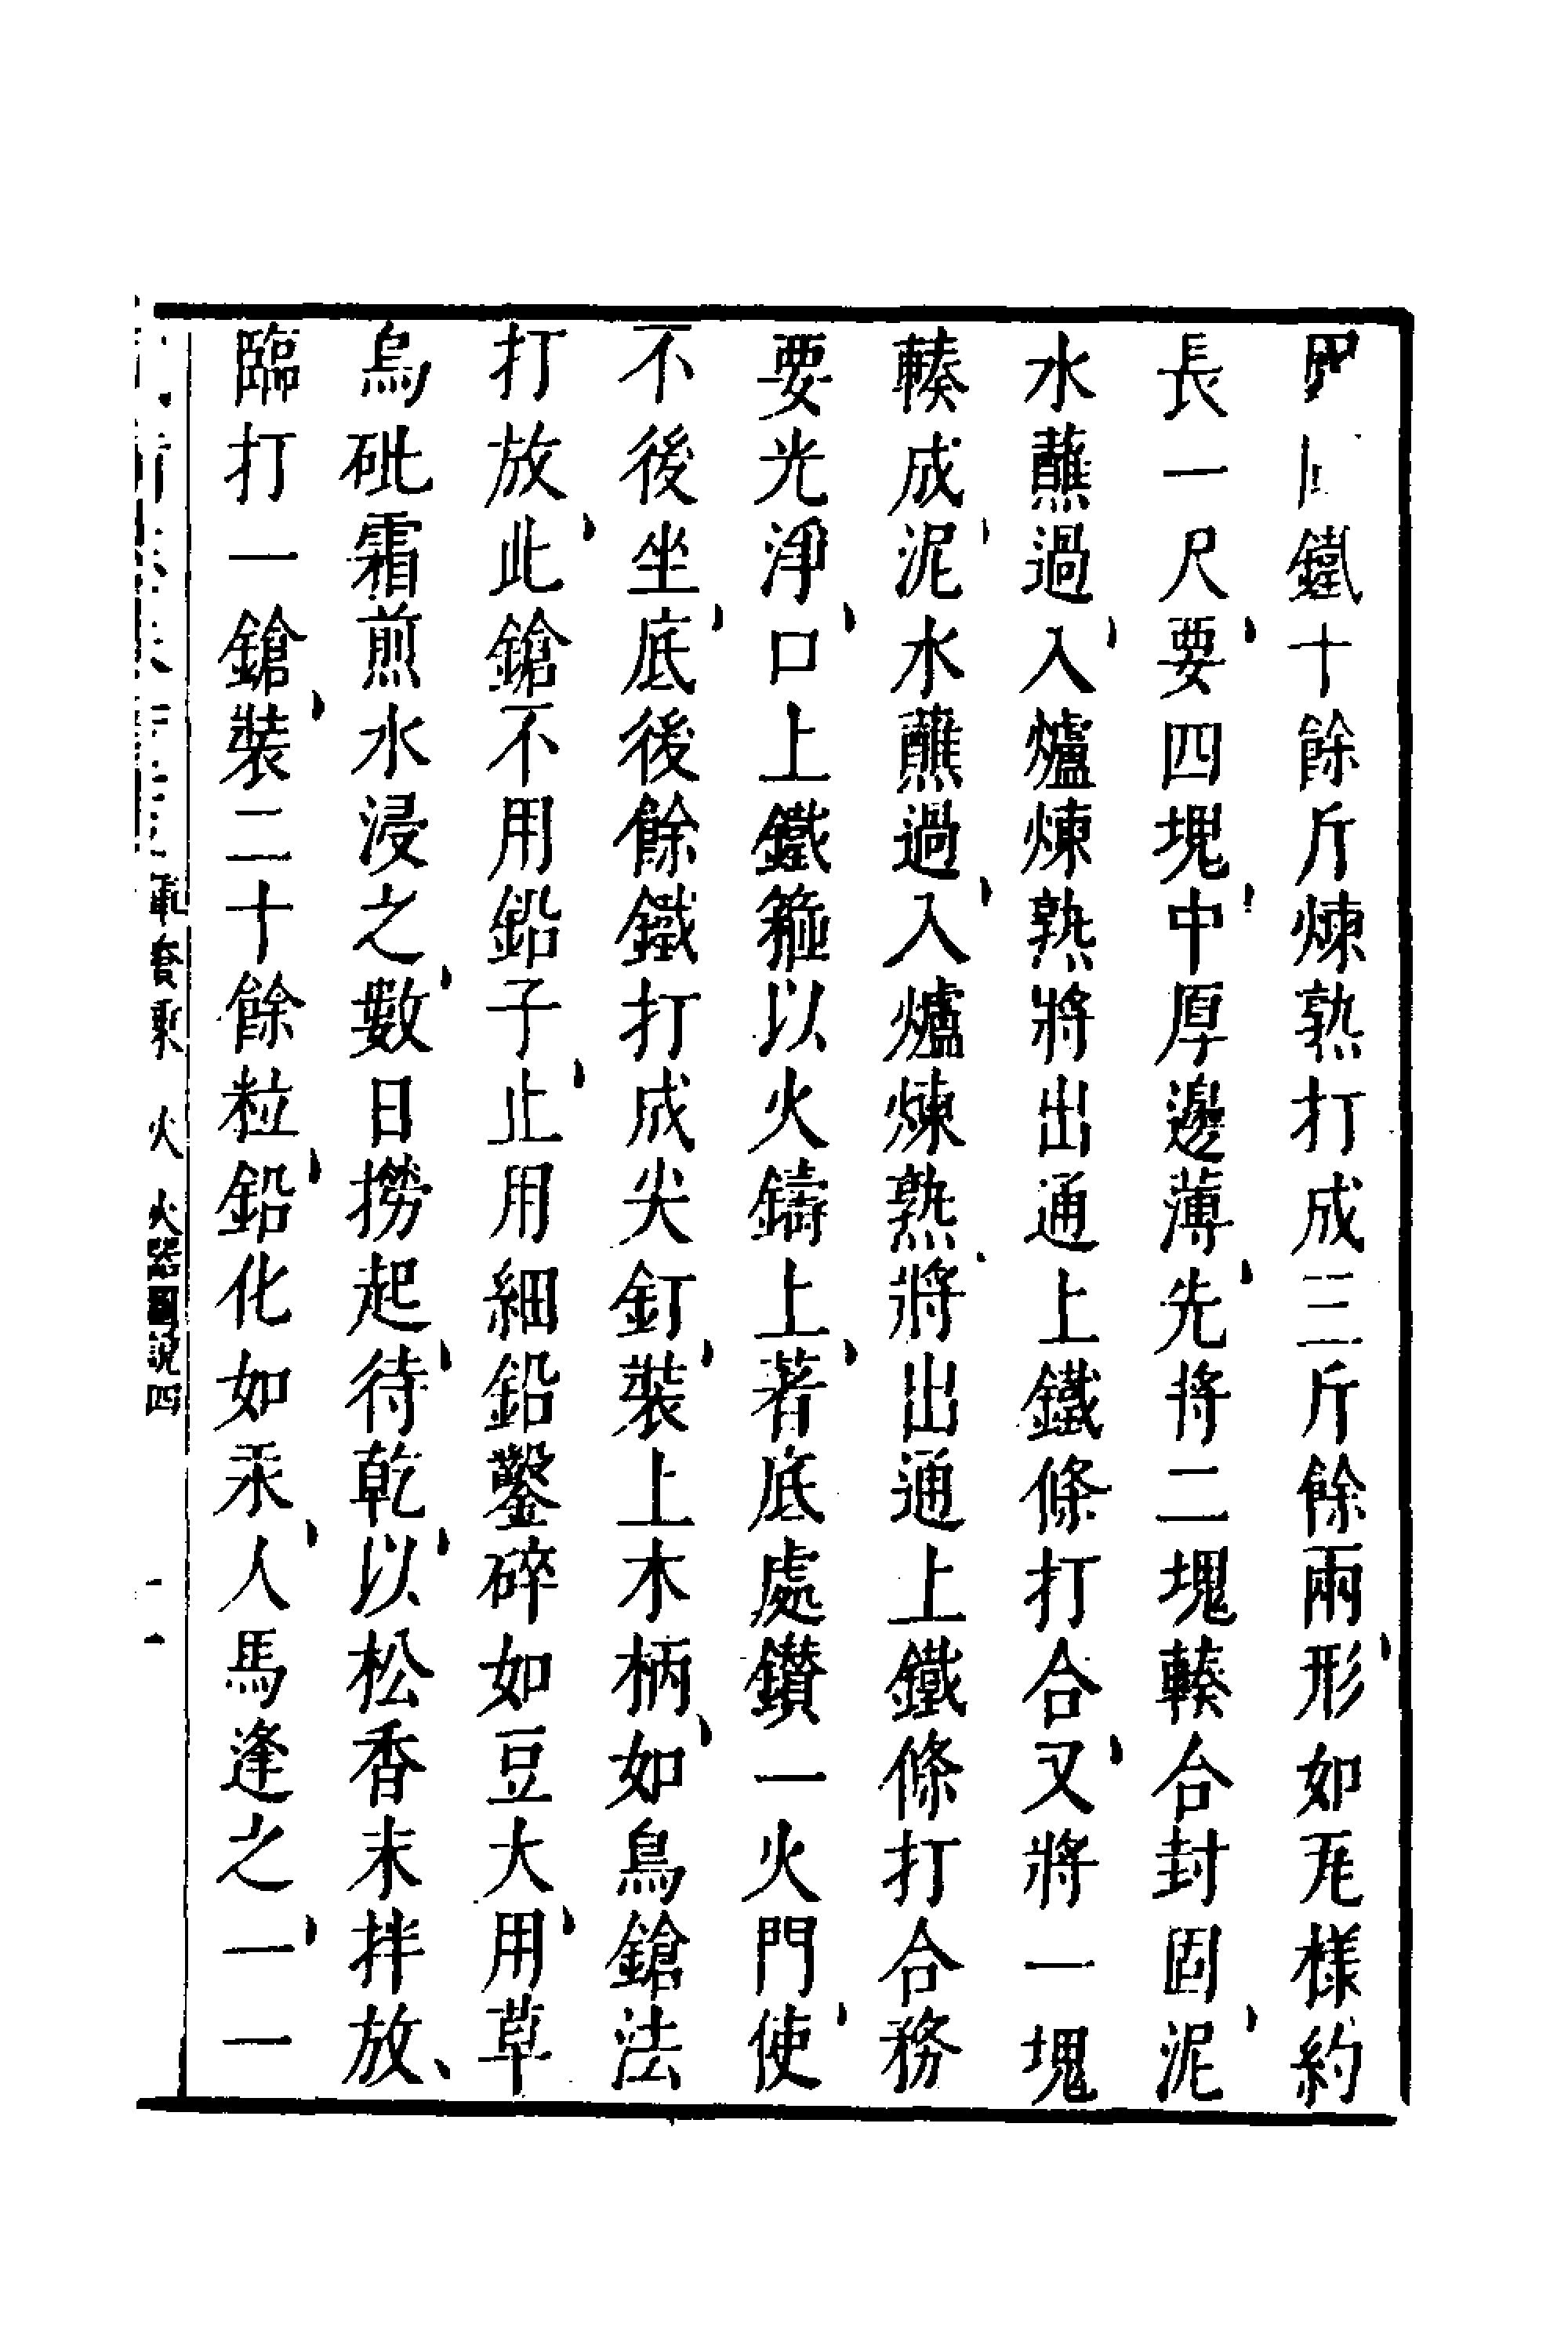 鐵十餘斤煉熟打成三斤餘兩形如瓦樣約
長一尺要四塊中厚邊薄先將二塊輳合封固泥
水蘸過入爐煉熟將出通上鐵條打合又將一塊
輳成泥水蘸過入爐煉熟將出通上鐵條打合務
要光淨口上鐵箍以火鑄上著底處鑽一火門使
不後坐底後餘鐵打成尖釘裝上木柄如鳥鎗法
打放此鎗不用鉛子止用細鉛鑿碎如豆大用草
烏砒霜煎水浸之數日撈起待乾以松香末拌放
臨打一鎗裝二十餘粒鉛化如汞人馬逢之一一
軍資乘 火 火器圖說四